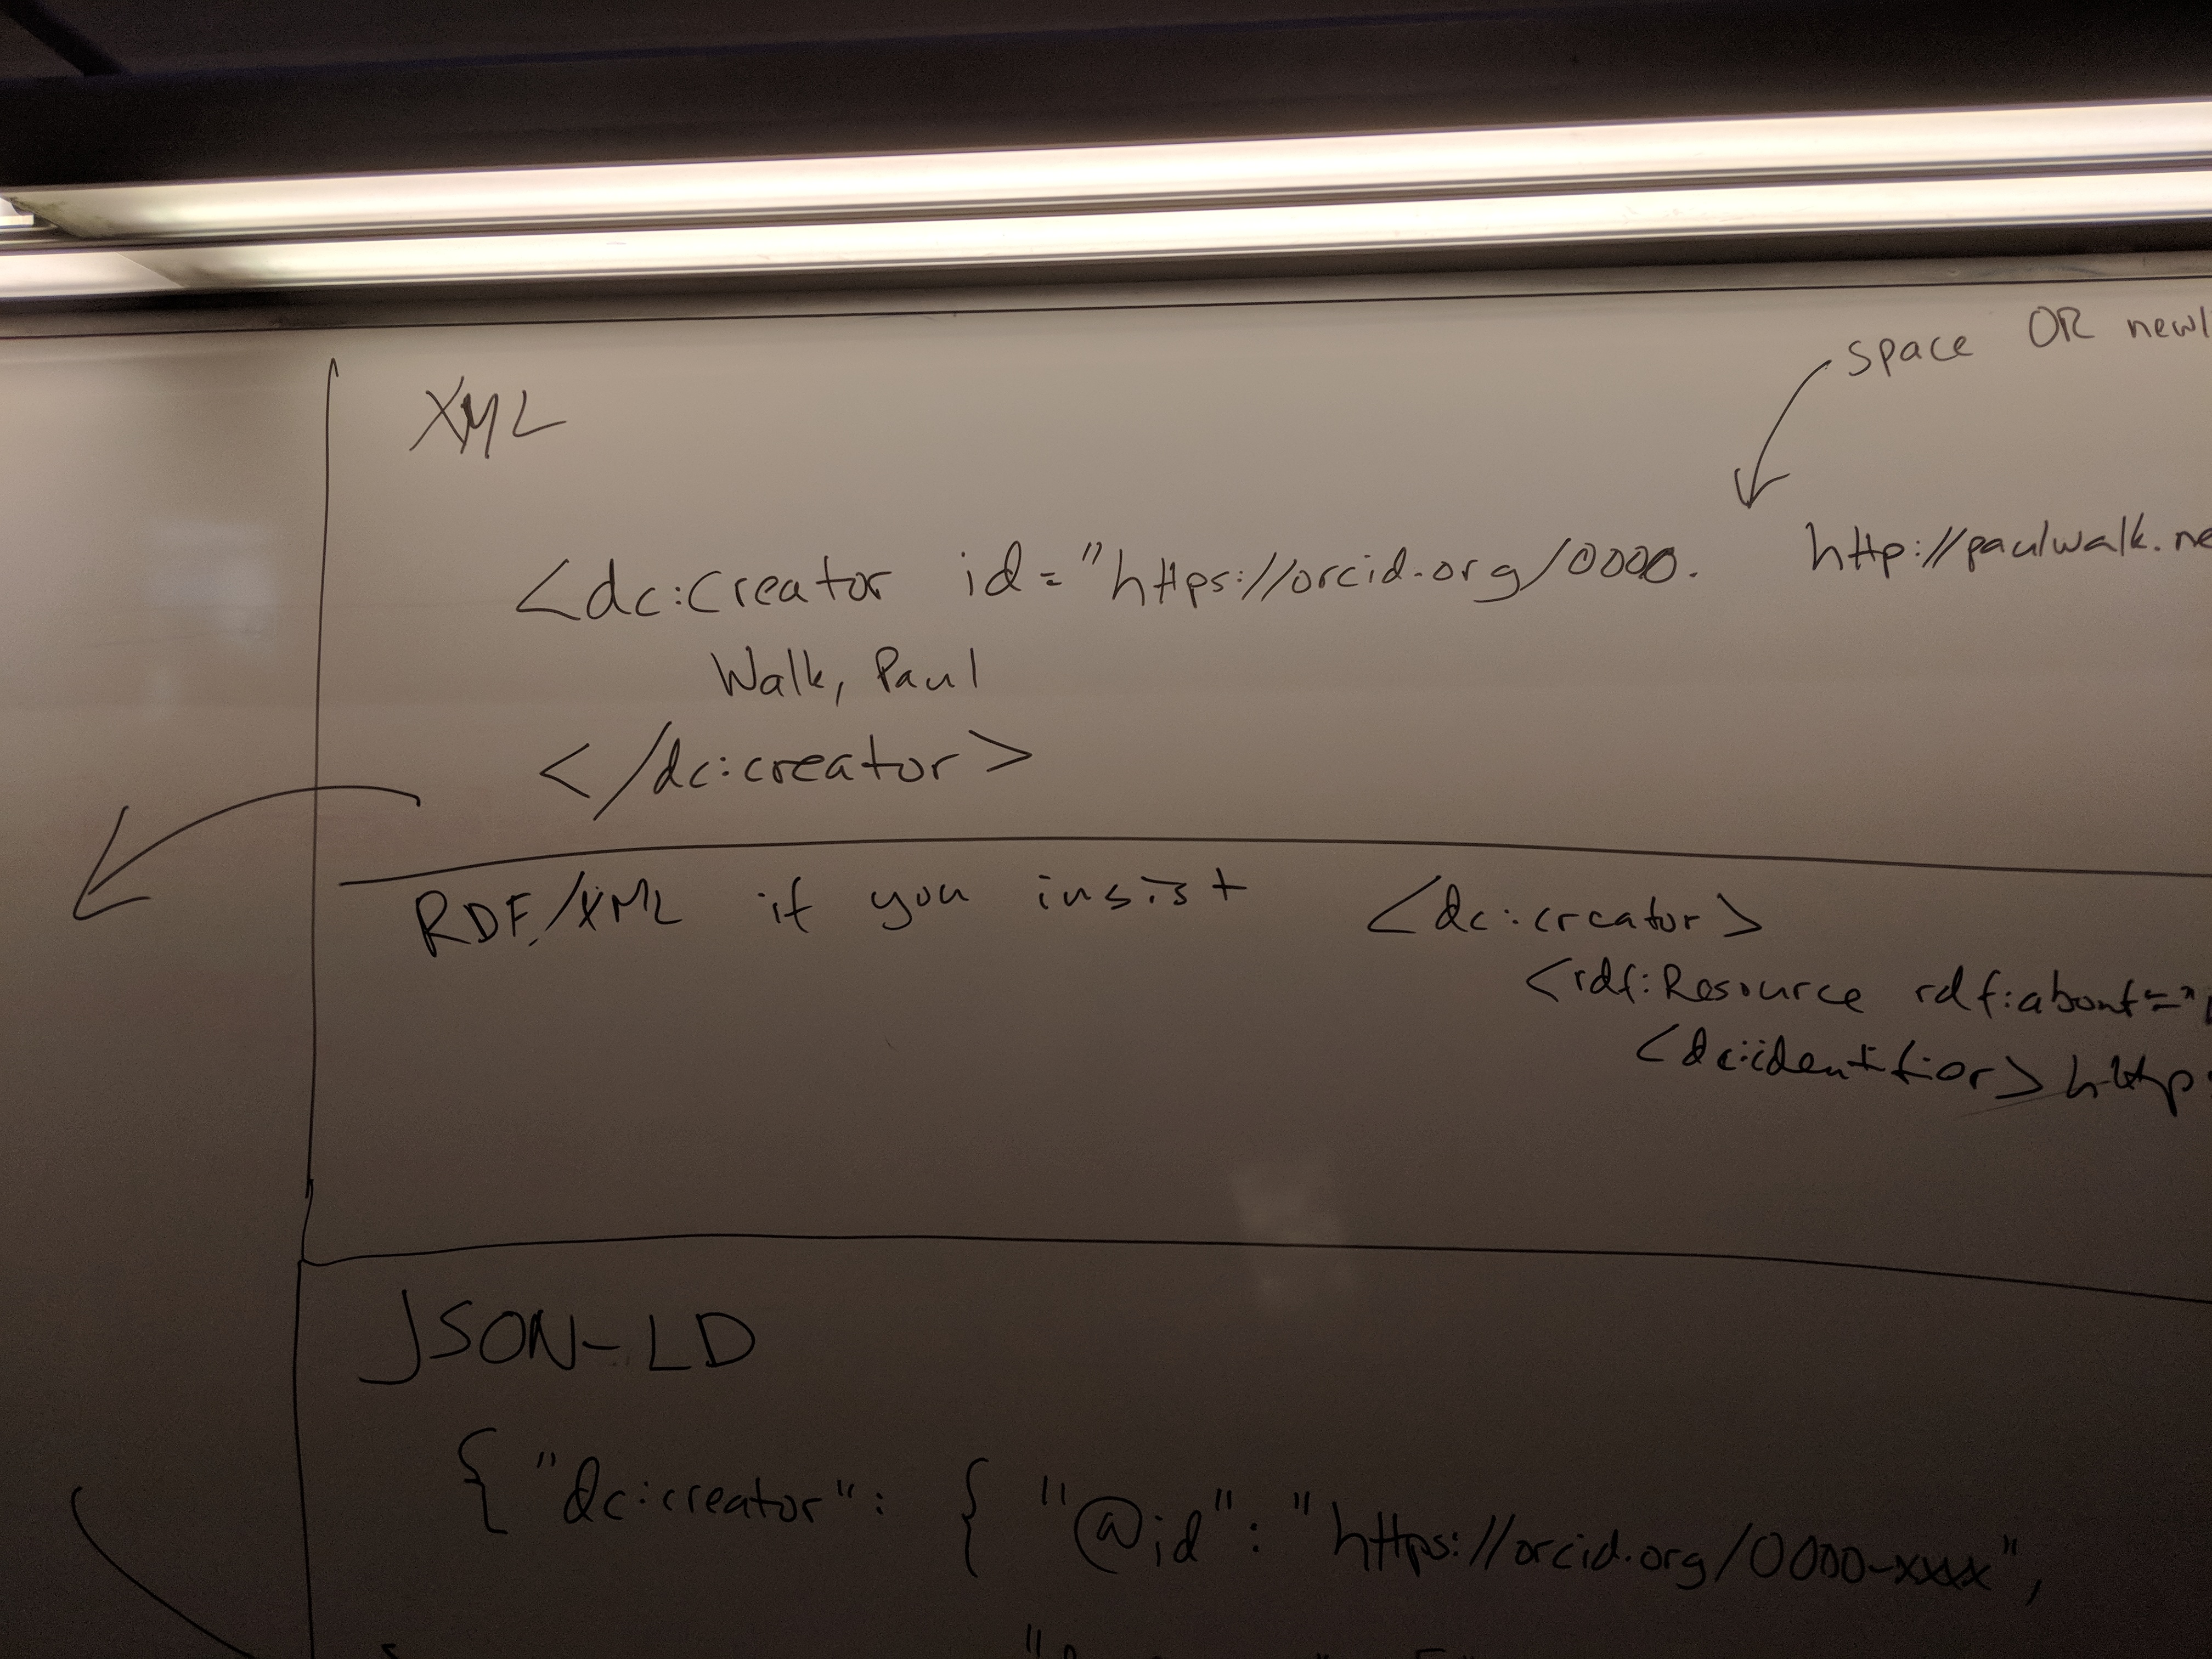 space OR newl
XML
<dc:creator id="https://orcid.org/0000. http://paulwalk.ne
Walk, Paul
</dc:creator>
RDF/XML if you insist <dc:creator>
<rdf:Resource rdf:about="
<dc:identifier>http:
JSON-LD
{ "dc:creator": { "@id": "https://orcid.org/0000-xxxx",